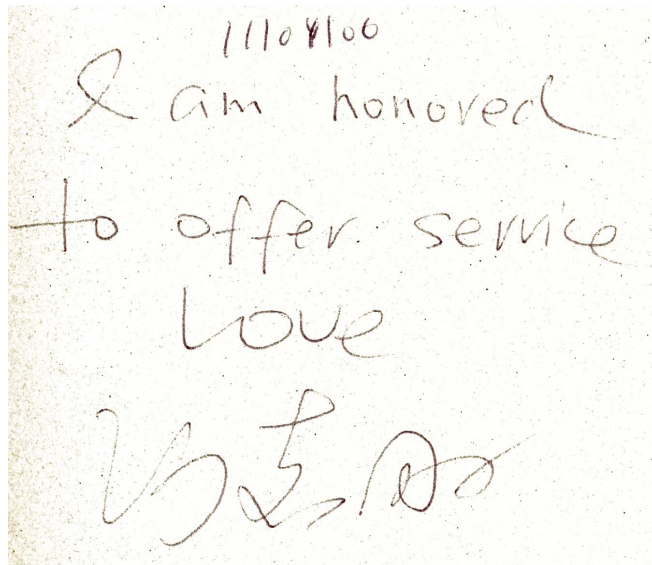 11/04/00
I am honored
to offer service
Love